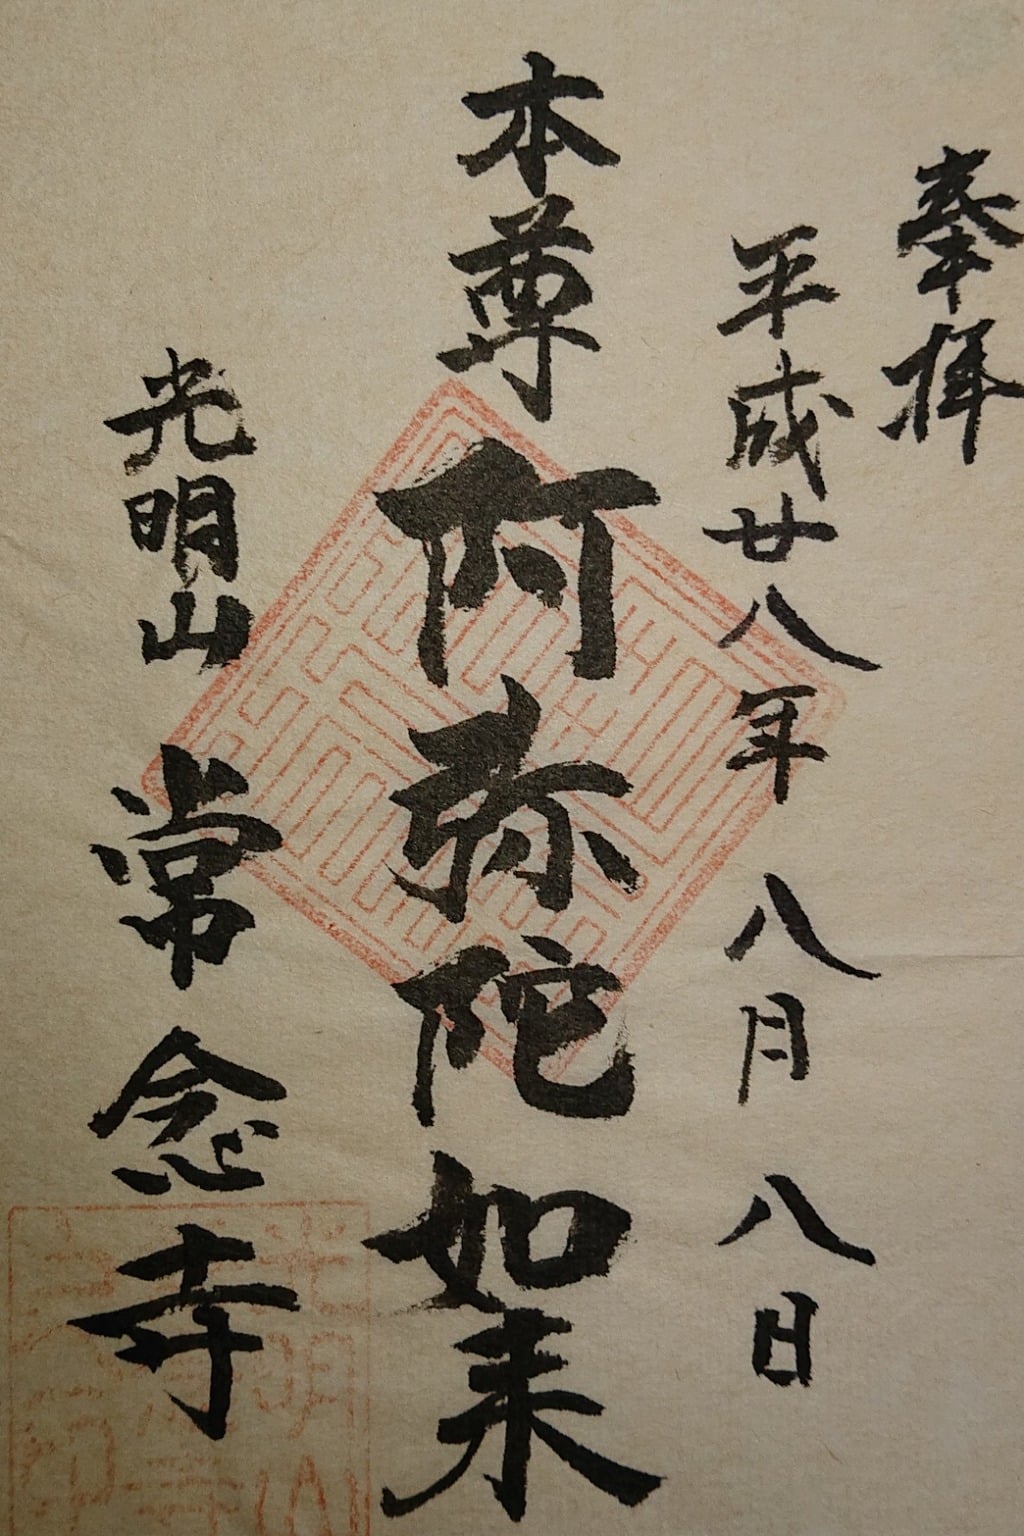 奉拝
平成廿八年 八月 八日
本尊 阿弥陀如来
光明山 常念寺